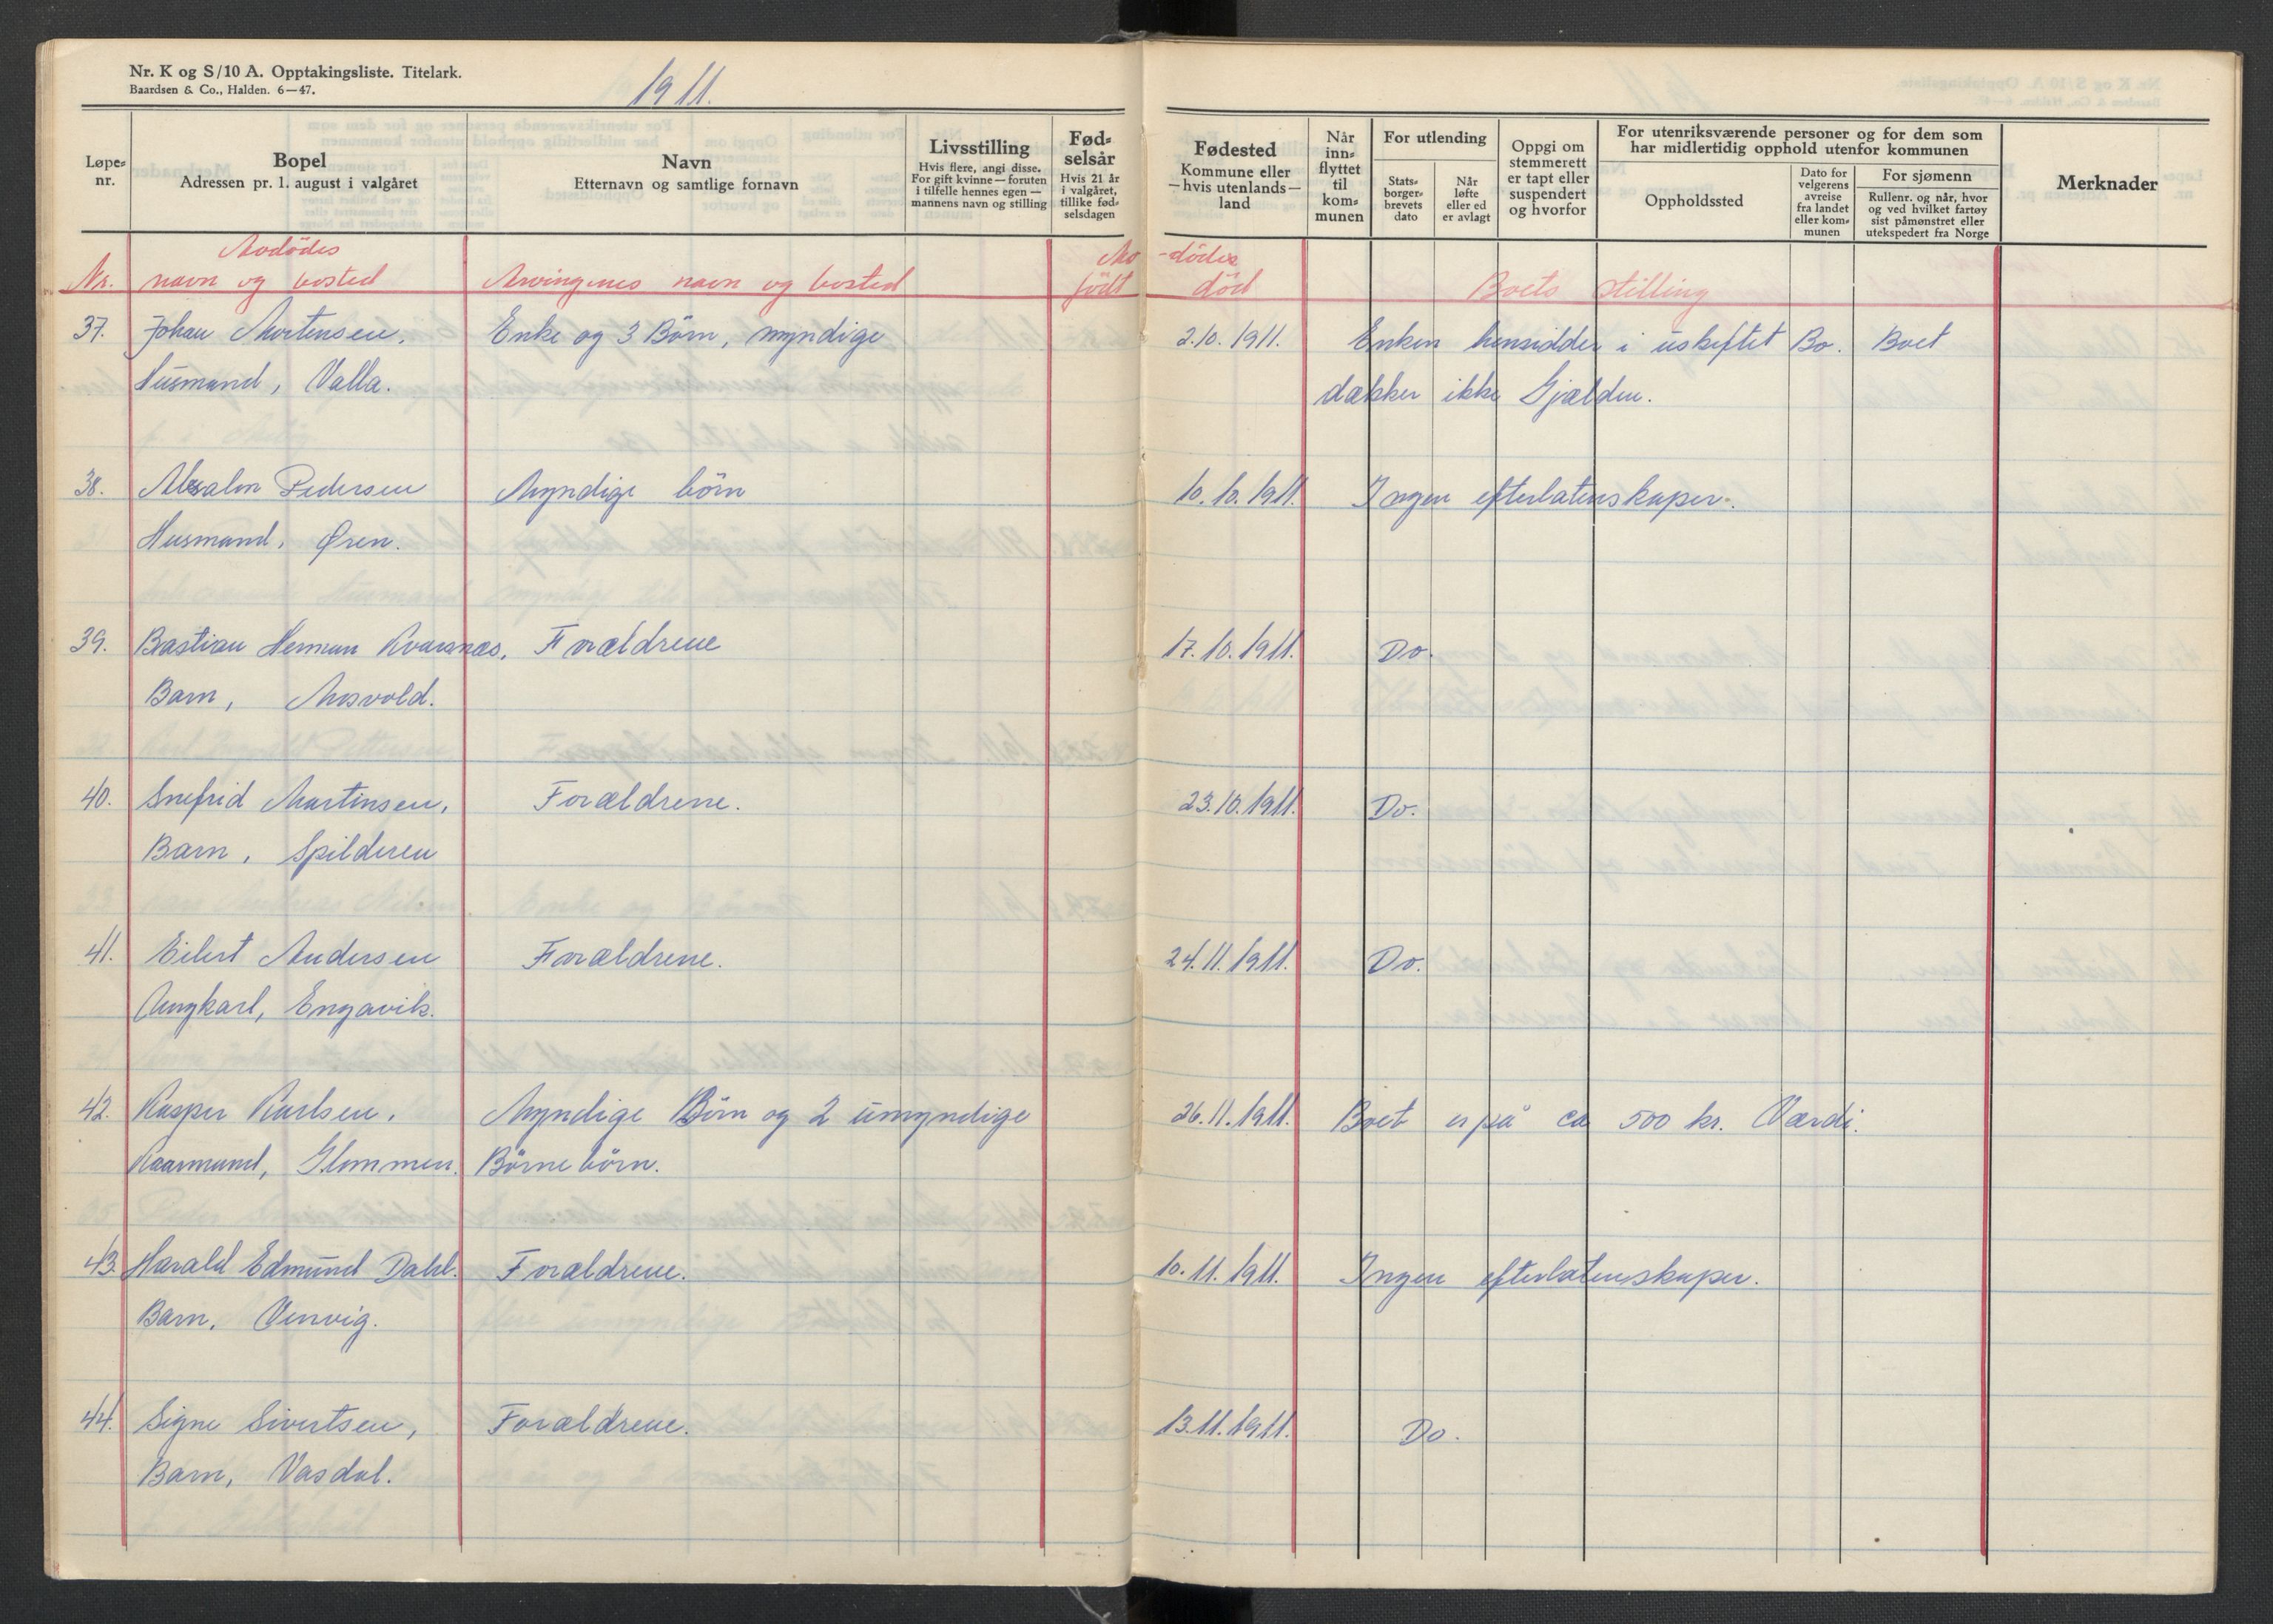 Nr. K og S/10 A. Opptakingsliste. Titelark.
Baardsen & Co., Halden. 6—47.
1911.
Løpe-
nr.
Bopel
Adressen pr. 1. august i valgåret
Navn
Etternavn og samtlige fornavn
Livsstilling
Hvis flere, angi disse.
For gift kvinne — foruten
i tilfelle hennes egen —
mannens navn og stilling
Fød-
selsår
Hvis 21 år
i valgåret,
tillike fød-
selsdagen
Fødested
Kommune eller
— hvis utenlands —
land
Når
inn-
flyttet
til
kom-
munen
For utlending
Stats-
borger-
brevets
dato
Når
løfte
eller ed
er avlagt
Oppgi om
stemmerett
er tapt eller
suspendert
og hvorfor
For utenriksværende personer og for dem som
har midlertidig opphold utenfor kommunen
Oppholdssted
Dato for
velgerens
avreise
fra landet
eller kom-
munen
For sjømenn
Rullenr. og når, hvor
og ved hvilket fartøy
sist påmønstret eller
utekspedert fra Norge
Merknader
Avdödes Av -dödes
Nr. navn og bosted Arvingenes navn og bosted födt död Boets stilling
37. Johan Mortensen, Enke og 3 Börn, myndige 2.10.1911. Enken hensidder i uskiftet Bo. Boet
Husmand, Valla. dækker ikke Gjælden.
38. Absalon Pedersen Myndige börn 10.10.1911. Ingen efterlatenskaper.
Husmand, Øren.
39. Bastian Herman Kvarsnæs, Forældrene 17.10.1911. Do.
Barn, Mosvold.
40. Snefrid Martinsen, Forældrene. 23.10.1911. Do.
Barn, Spilderen
41. Eilert Andersen Forældrene. 24.11.1911. Do.
Ungkarl, Engavik.
42. Kasper Karlsen, Myndige Börn og 2 umyndige 26.11.1911. Boet er på ca 500 kr. Værdi.
Kaarmand, Glommen. Börnebörn.
43. Harald Edmund Dahl. Forældrene. 10.11.1911. Ingen efterlatenskaper.
Barn, Venvig.
44. Signe Sivertsen, Forældrene. 13.11.1911. Do.
Barn, Vasdal.